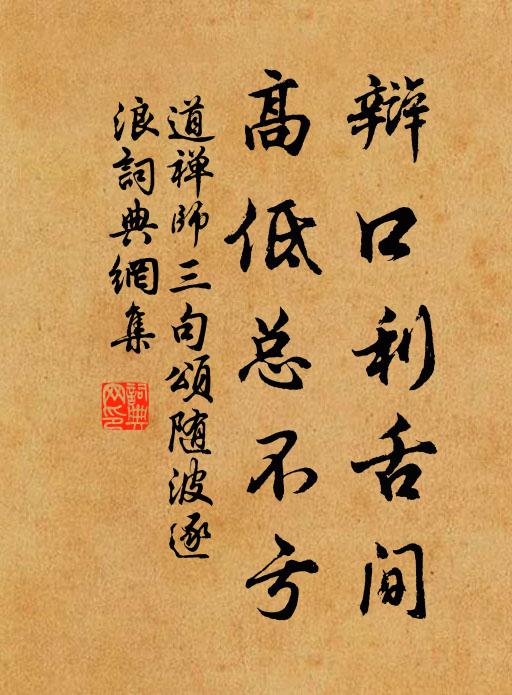 辩口利舌间
高低总不亏
道禅师三句颂随波逐
浪词典網集
詞典網印